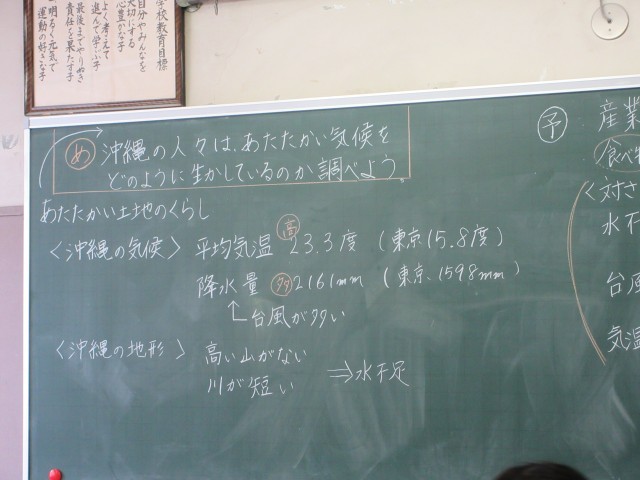 学校教育目標
自分やみんなを
大切にする
心豊かな子
よく考えて
進んで学ぶ子
最後までやりぬき
責任を果たす子
明るく元気で
運動の好きな子
め 沖縄の人々は、あたたかい気候を
どのように生かしているのか調べよう。
あたたかい土地のくらし
〈沖縄の気候〉 平均気温 高 23.3度 (東京15.8度)
降水量 多 2161mm (東京 1598mm)
↑台風が多い
〈沖縄の地形〉 高い山がない
川が短い ⇒水不足
予 産業
食べ
〈対さ
水不
台風
気温